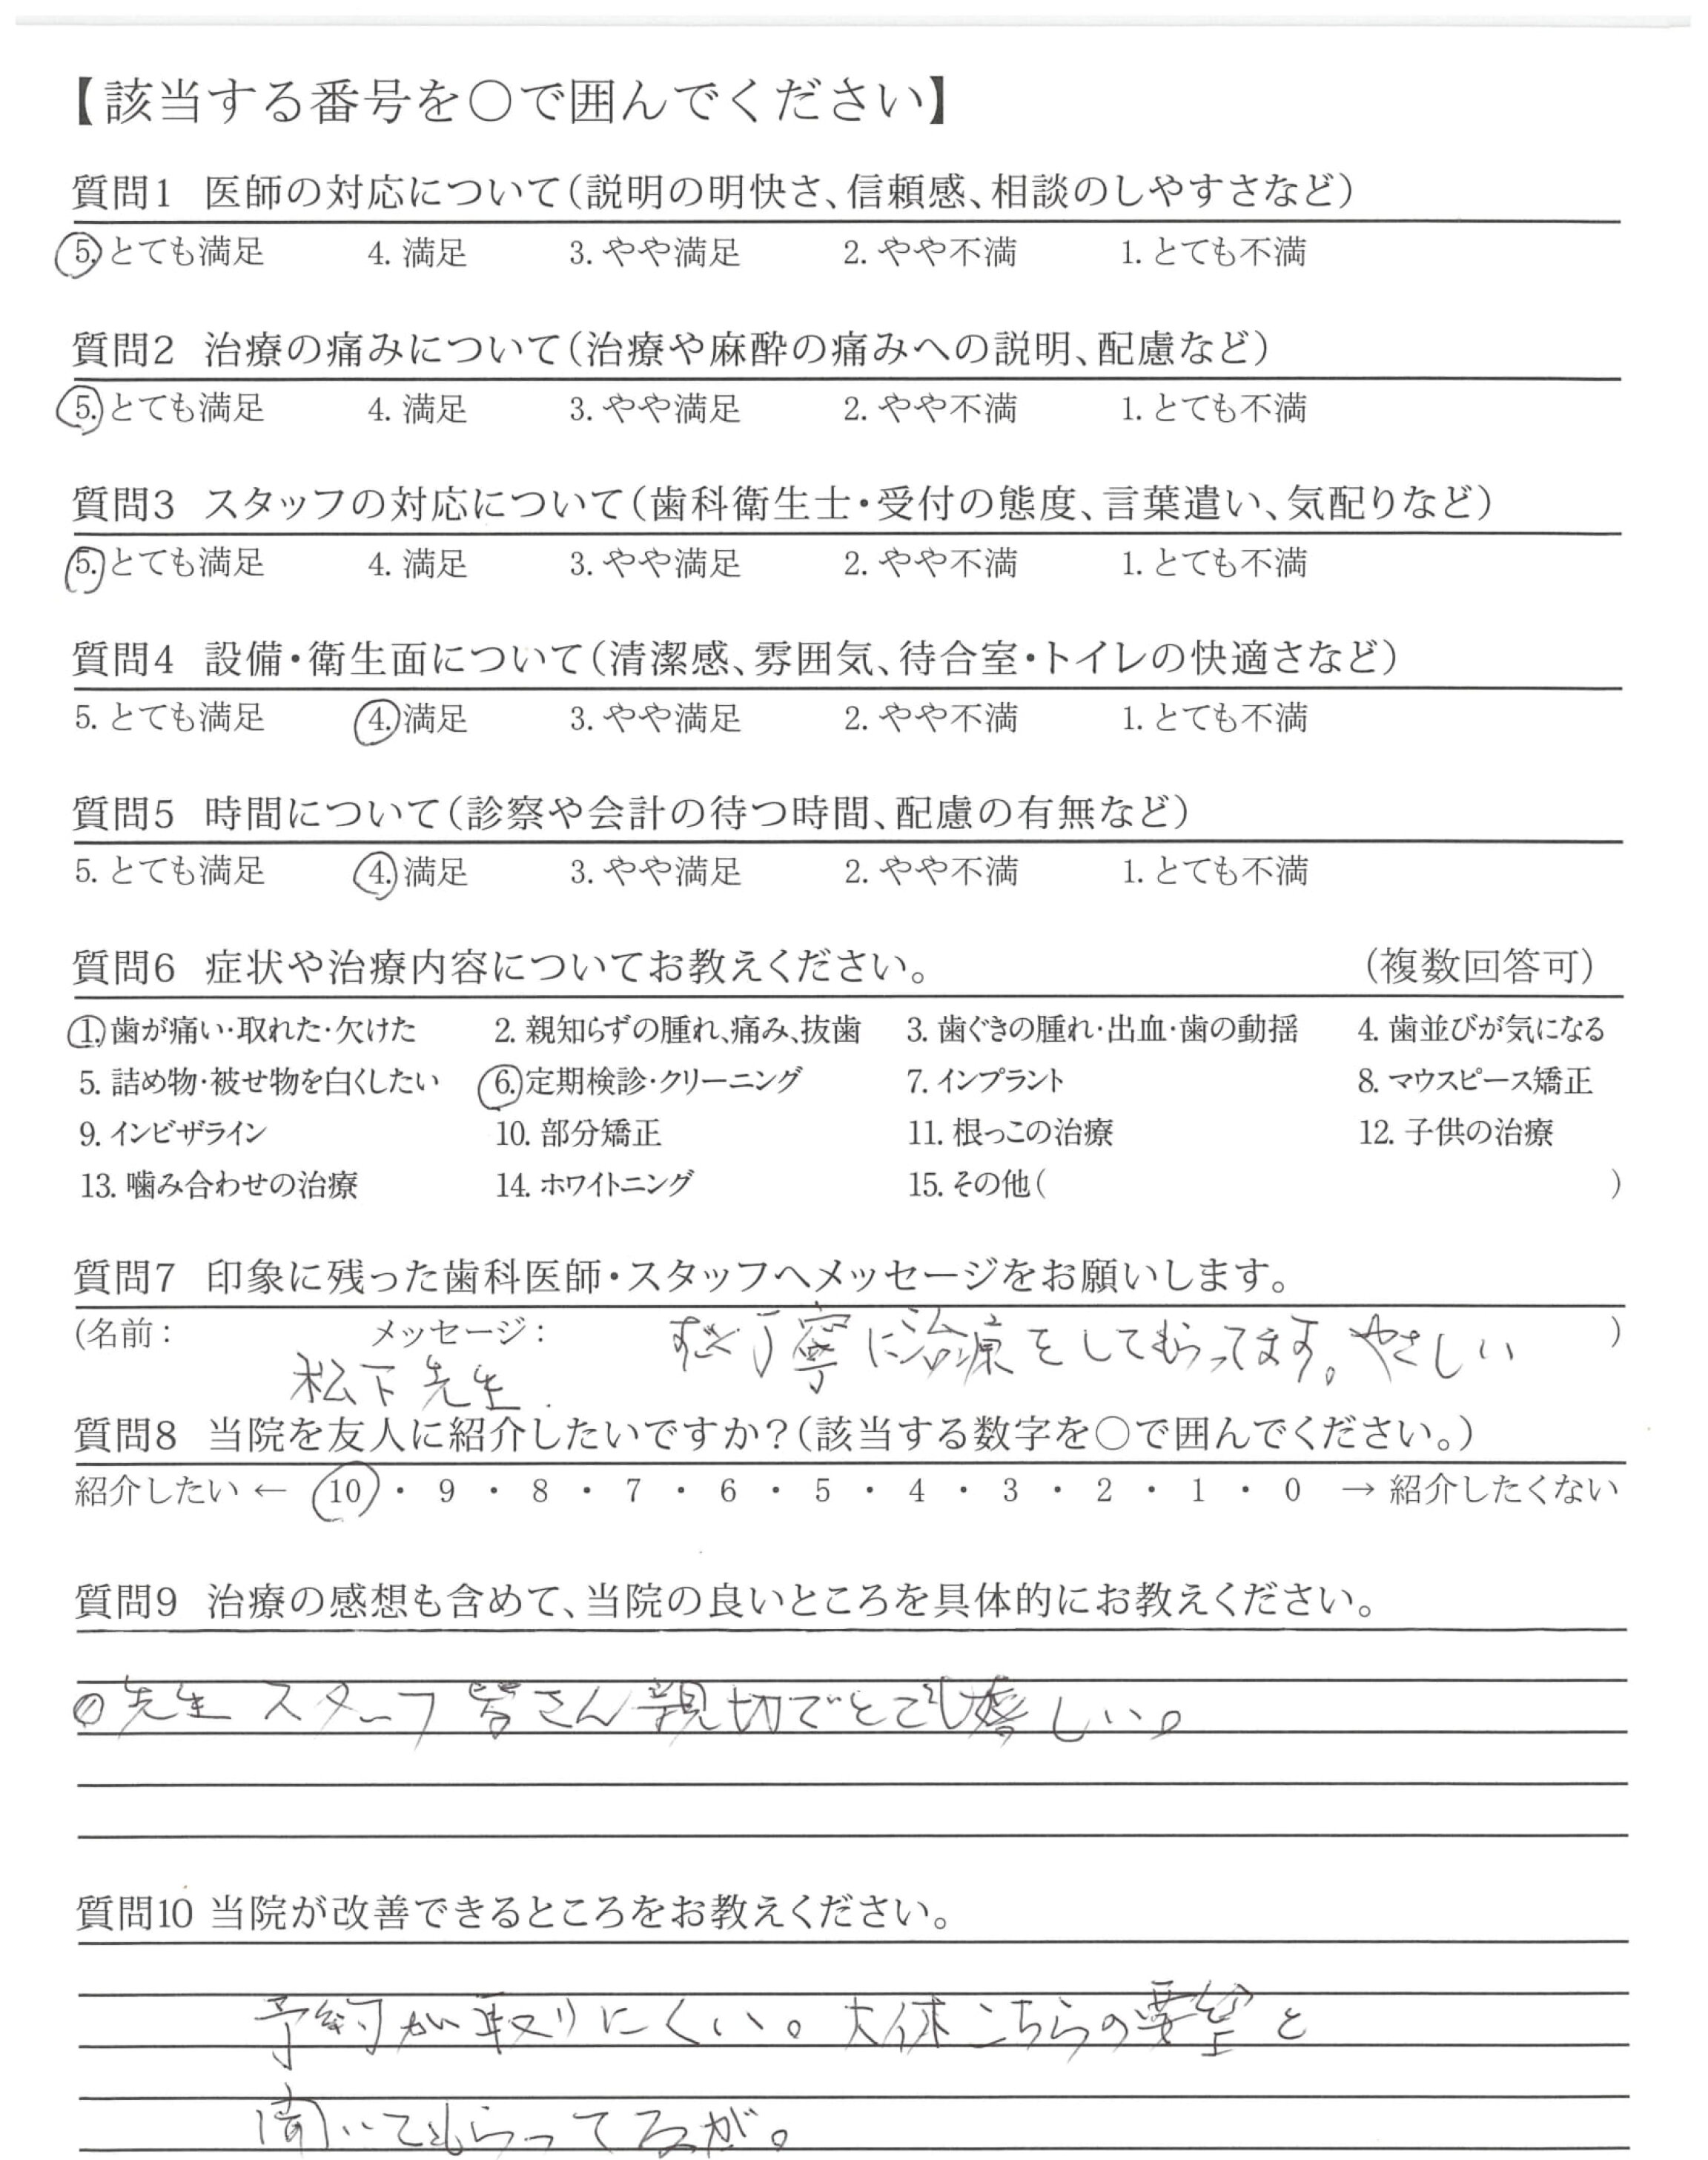 【該当する番号を○で囲んでください】
質問1 医師の対応について(説明の明快さ、信頼感、相談のしやすさなど)
5. とても満足 4. 満足 3. やや満足 2. やや不満 1. とても不満
質問2 治療の痛みについて(治療や麻酔の痛みへの説明、配慮など)
5. とても満足 4. 満足 3. やや満足 2. やや不満 1. とても不満
質問3 スタッフの対応について(歯科衛生士・受付の態度、言葉遣い、気配りなど)
5. とても満足 4. 満足 3. やや満足 2. やや不満 1. とても不満
質問4 設備・衛生面について(清潔感、雰囲気、待合室・トイレの快適さなど)
5. とても満足 4. 満足 3. やや満足 2. やや不満 1. とても不満
質問5 時間について(診察や会計の待つ時間、配慮の有無など)
5. とても満足 4. 満足 3. やや満足 2. やや不満 1. とても不満
質問6 症状や治療内容についてお教えください。 (複数回答可)
1. 歯が痛い・取れた・欠けた 2. 親知らずの腫れ、痛み、抜歯 3. 歯ぐきの腫れ・出血・歯の動揺 4. 歯並びが気になる
5. 詰め物・被せ物を白くしたい 6. 定期検診・クリーニング 7. インプラント 8. マウスピース矯正
9. インビザライン 10. 部分矯正 11. 根っこの治療 12. 子供の治療
13. 噛み合わせの治療 14. ホワイトニング 15. その他( )
質問7 印象に残った歯科医師・スタッフへメッセージをお願いします。
(名前: メッセージ: 丁寧に治療をしてもらってます。やさしい )
松下先生.
質問8 当院を友人に紹介したいですか?(該当する数字を○で囲んでください。)
紹介したい ← 10 ・ 9 ・ 8 ・ 7 ・ 6 ・ 5 ・ 4 ・ 3 ・ 2 ・ 1 ・ 0 → 紹介したくない
質問9 治療の感想も含めて、当院の良いところを具体的にお教えください。
先生 スタッフ 皆さん親切でとても嬉しい。
質問10 当院が改善できるところをお教えください。
予約が取りにくい。大体こちらの要望を
聞いてもらってるが。